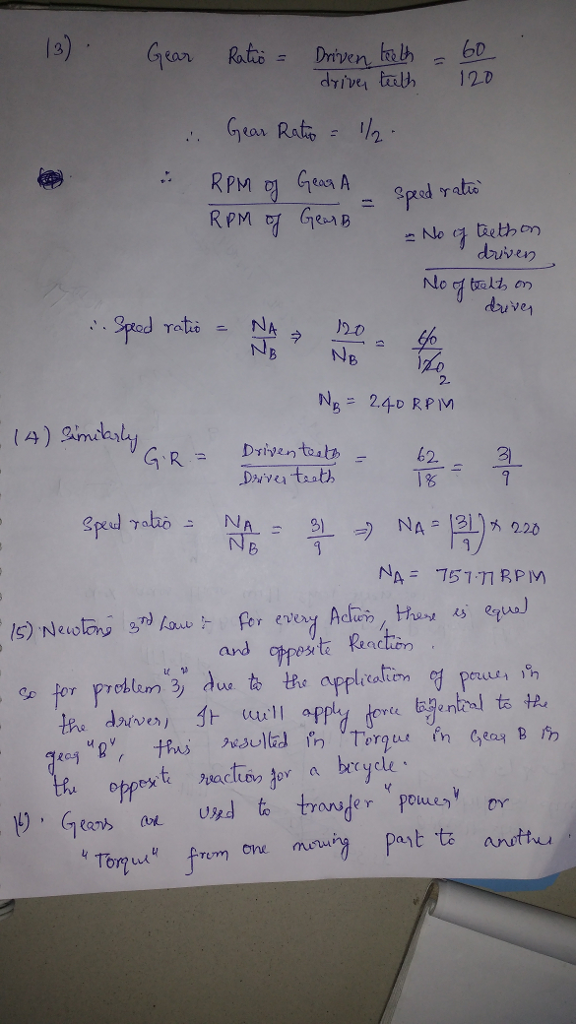 (3). Gear Ratio = Driven teeth / driver teeth = 60 / 120
∴ Gear Ratio = 1/2.
∴ RPM of Gear A / RPM of Gear B = Speed ratio
= No of teeth on driven / No of teeth on driver
∴ Speed ratio = NA / NB ⇒ 120 / NB = 60 / 120 2
NB = 240 RPM
(4) Similarly G.R = Driven teeth / Driver teeth = 62 / 18 = 31 / 9
Speed ratio = NA / NB = 31 / 9 ⇒ NA = (31 / 9) * 220
NA = 757.77 RPM
(5) Newtons 3rd Law :- For every Action, there is equal
and opposite Reaction.
so for problem "3", due to the application of power in
the driver, It will apply force tangential to the
gear "B", this resulted in Torque in Gear B in
the opposite reaction for a bicycle.
16). Gears are used to transfer "power" or
"Torque" from one moving part to another.